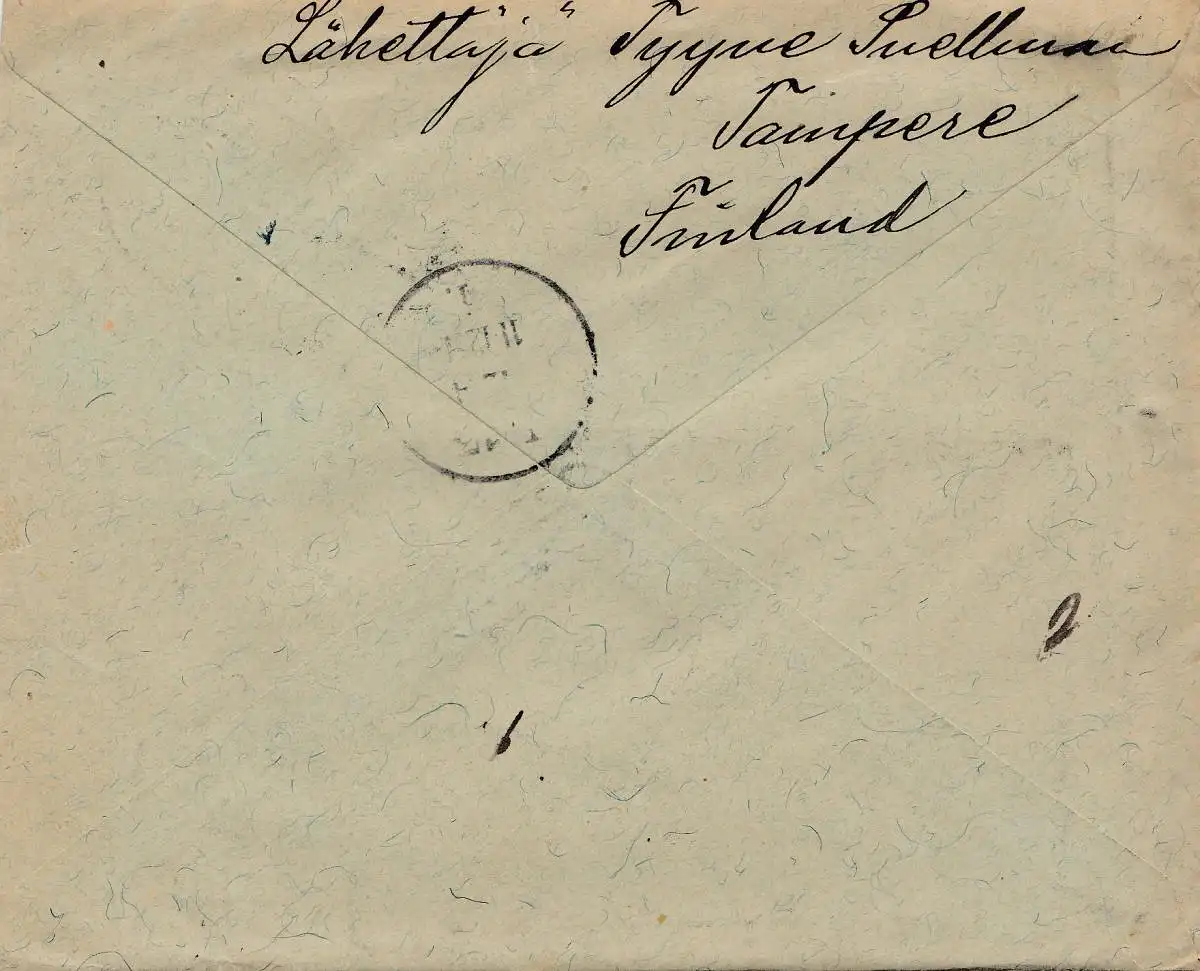 Lähettäjä Tyyne Snellman
Tampere
Finland
11.12